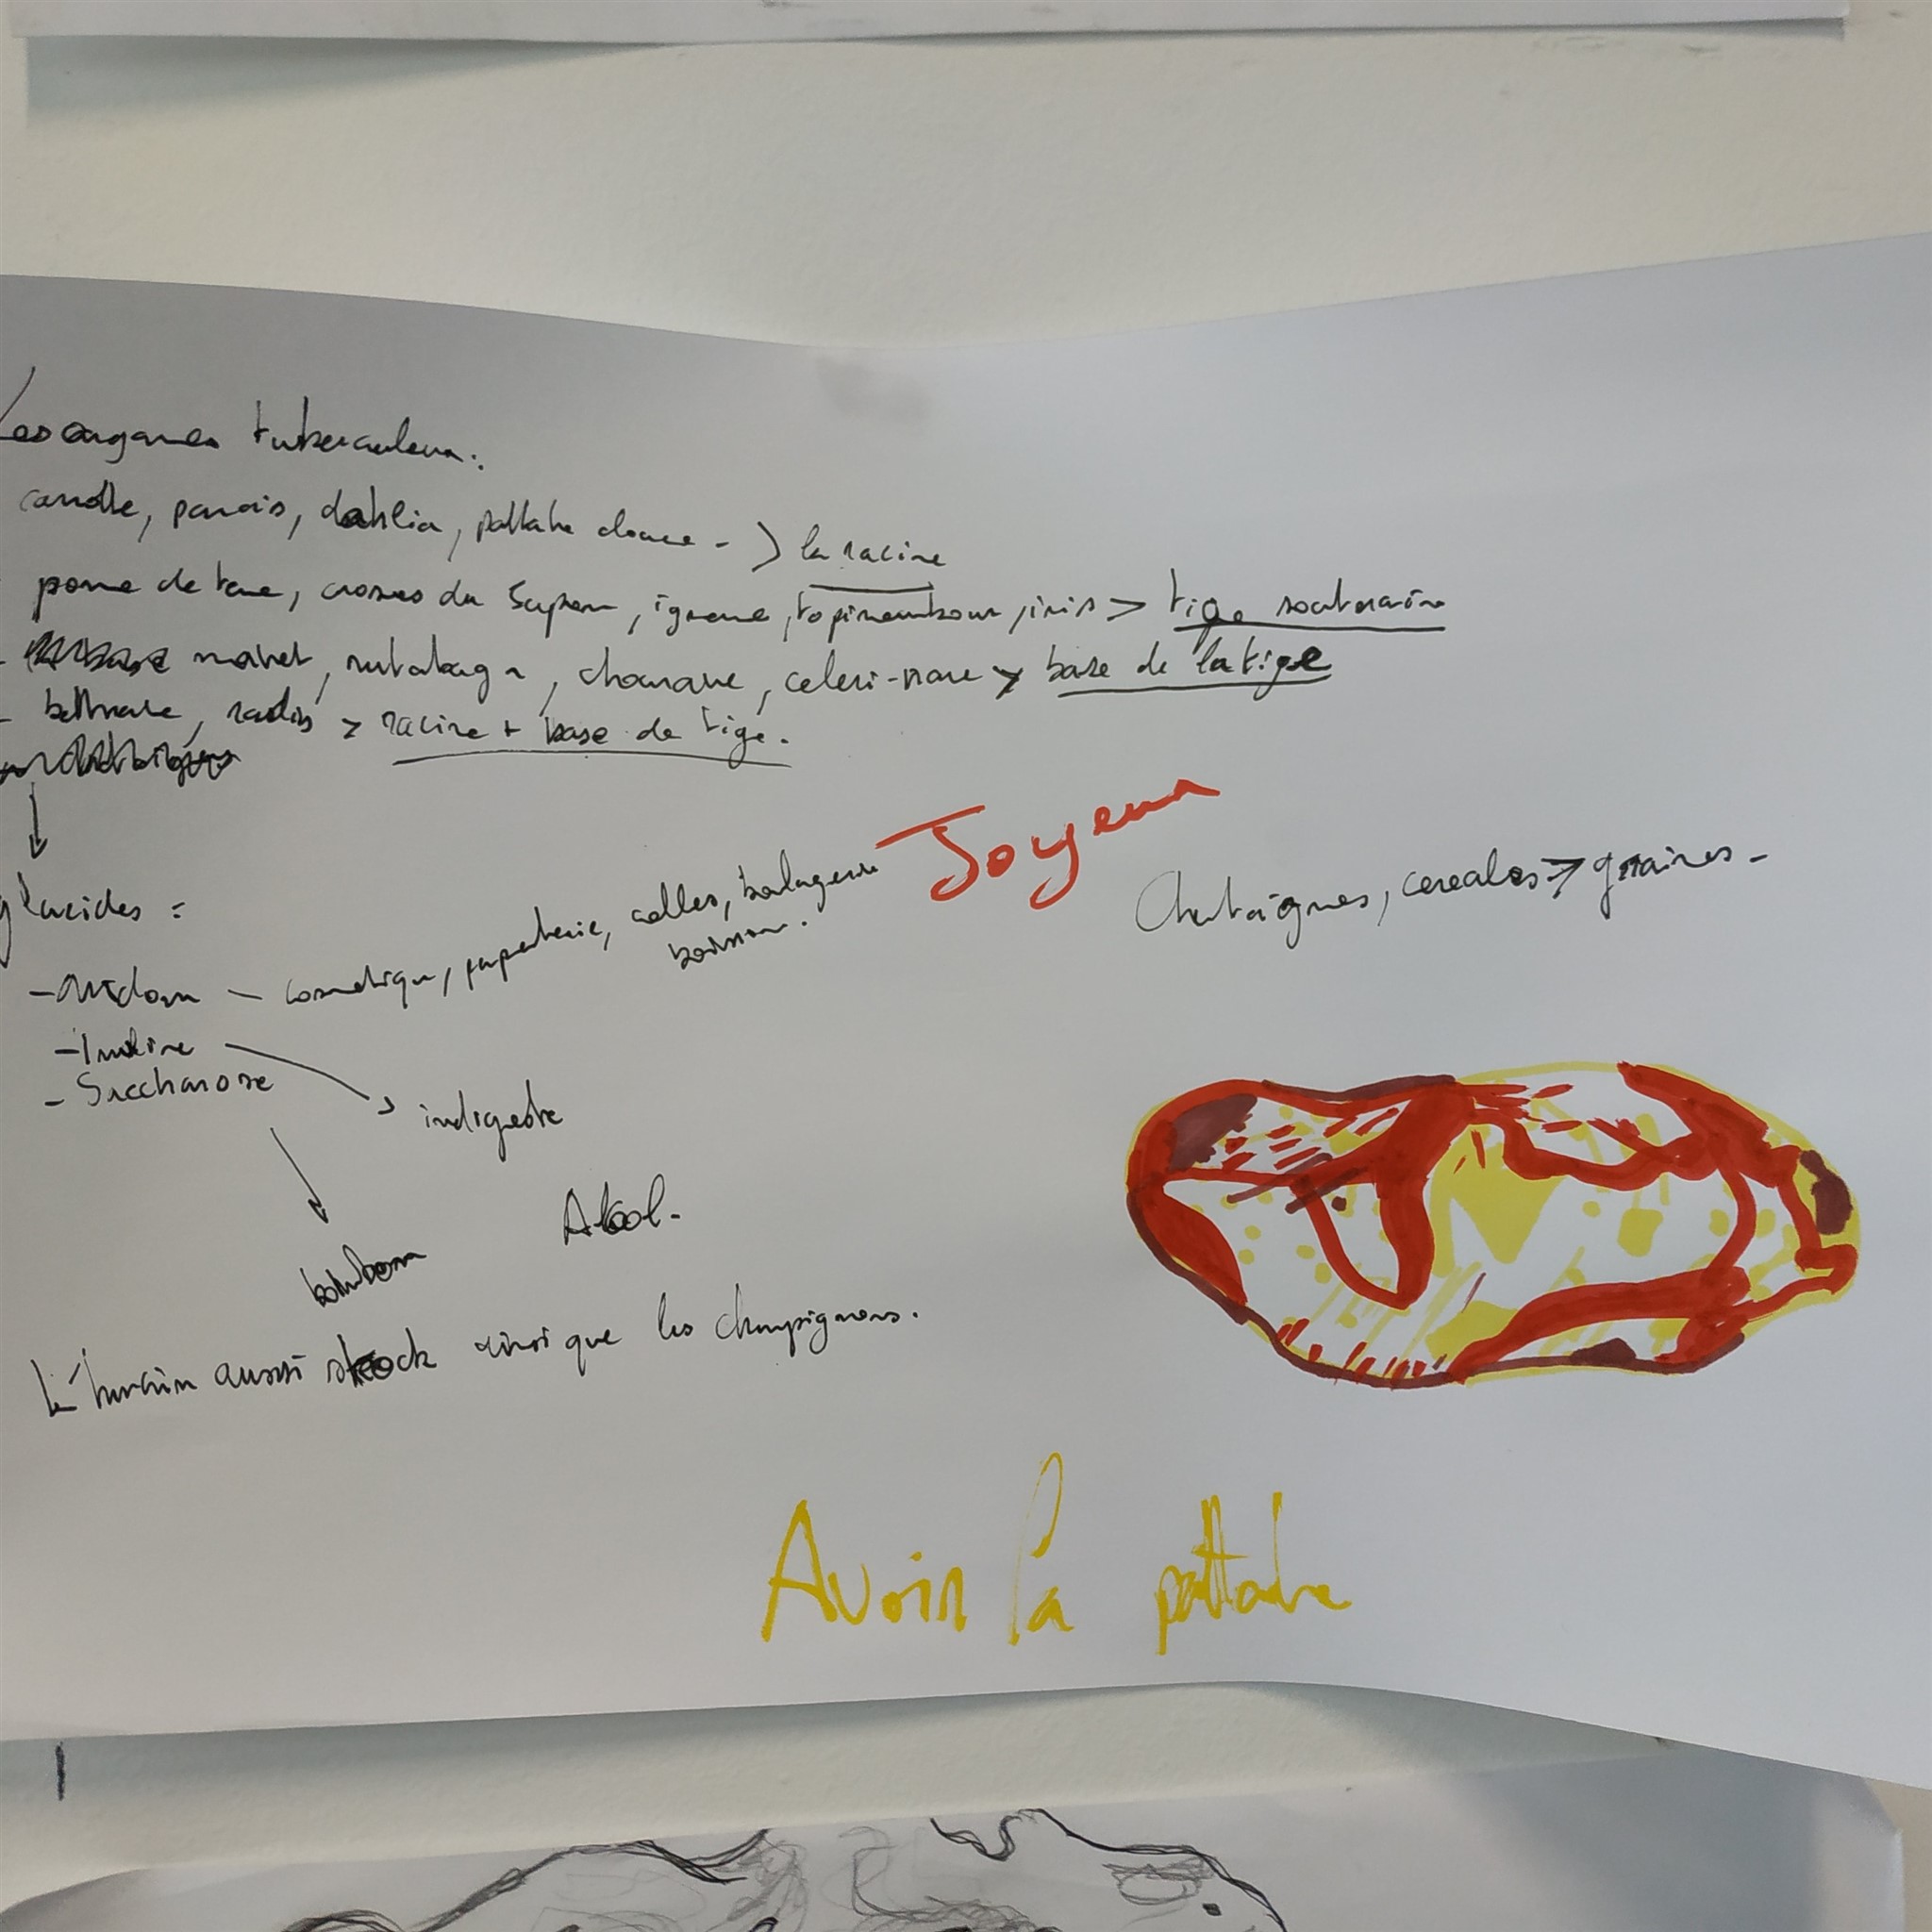 Les organes tuberculeux.
carotte, panais, dahlia, pattate douce -> la racine
pome de terre, crosnes du Japon, igname, topinambour, iris > tige souterraine
- navet, rutabaga, chourave, celeri-rave > base de la tige
- betterave, radis > racine + base de tige.
Joyeux
glucides :
Chataignes, cereales -> graines -
- Amidon - cosmetique, papeterie, colles, boulagerie
boisson.
- Inuline
- Saccharose
indigeste
Alcool.
bonbon
L'humain aussi stock ainsi que les champignons.
Avoir la pattate